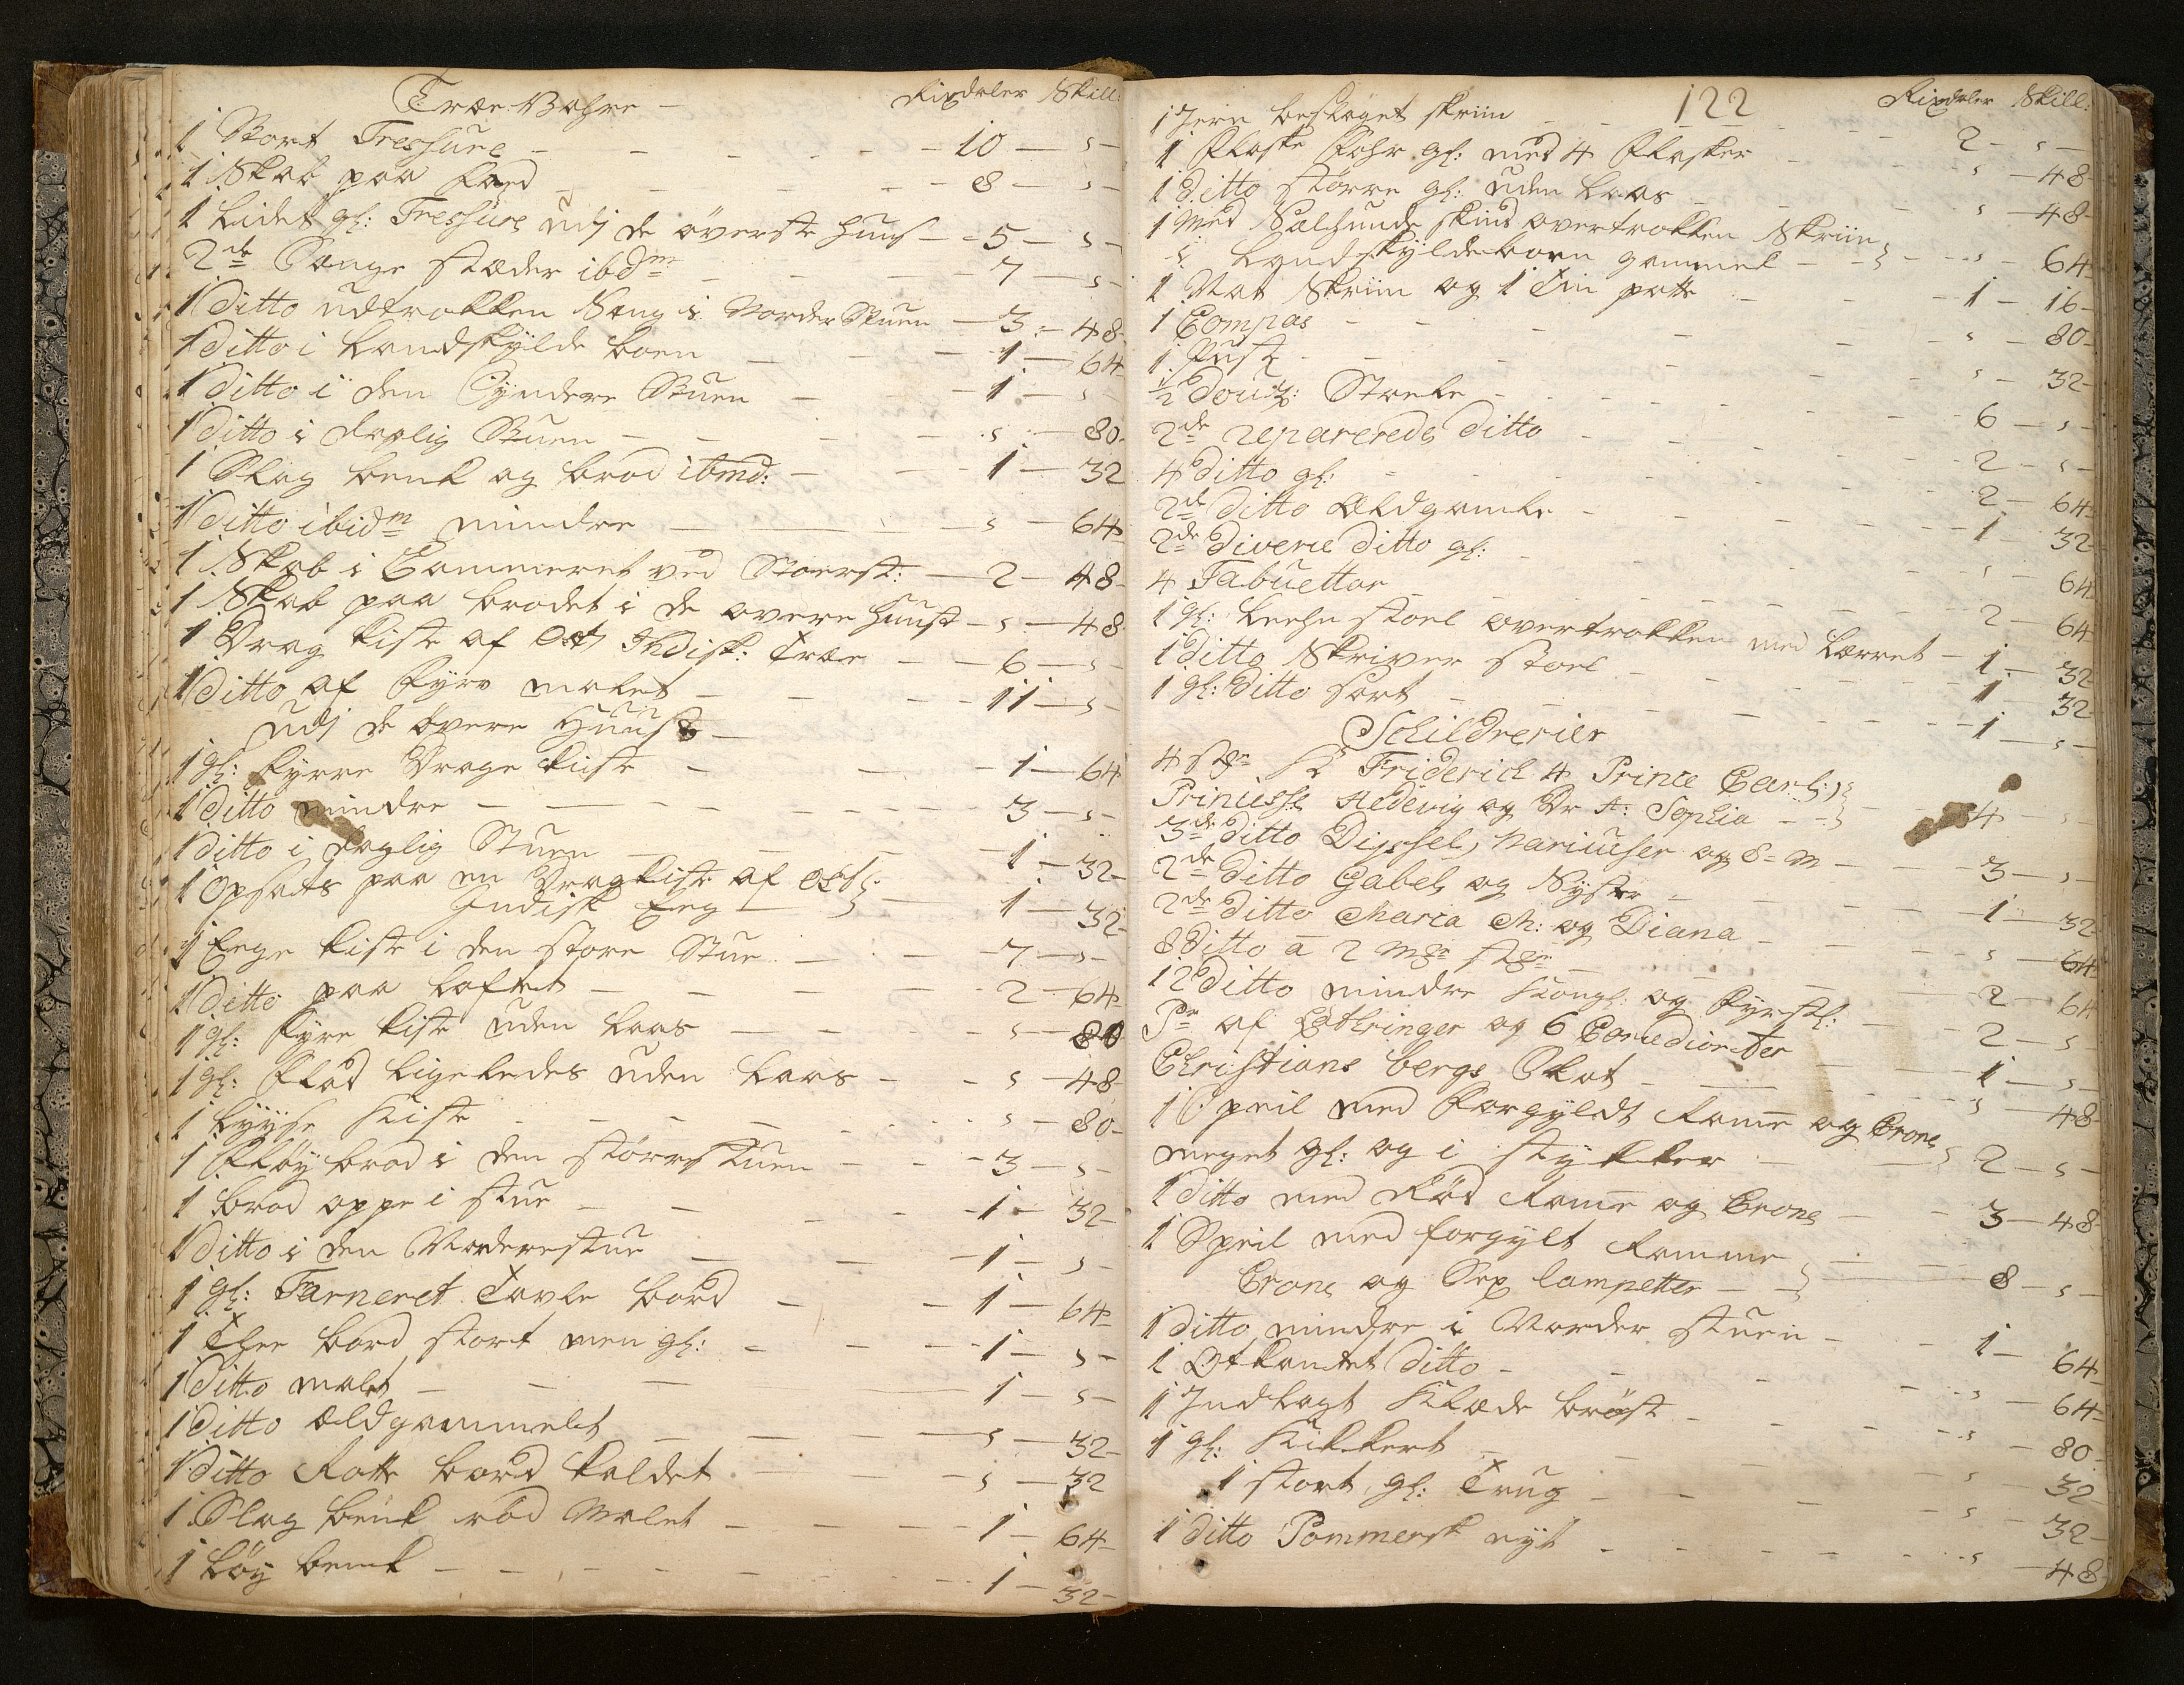 Træ Vahre — Rixdaler Skill:
1 Stort Tressure — 10 — s —
1 Skab paa Foed — 8 — s —
1 Lidet gl: Tressure udj de överste Huus — 5 — s —
2de Senge stæder ibdm — 7 — s —
1 Ditto udtrokken Seng i Norder Stuen — 3 — 48 —
1 Ditto i Landskylde boen — 1 — 64
1 Ditto i den Syndere Stuen — 1 — s —
1 Ditto i daglig Stuen — s — 80 —
1 Slag benk og bord ibmd: — 1 — 32
1 Ditto ibidm mindre — s — 64
1 Skab i Cammeret ved Storst: — 2 — 48 —
1 Skab paa bordet i de overe Huust — s — 48
1 Drag kiste af Ost Indisk: Træ — 6 — s —
1 Ditto af Fyrr malet — 11 — s —
udj de övere Huust —
1 gl: Fyrre Drage kiste — 1 — 64
1 Ditto mindre — 3 — s —
1 Ditto i daglig Stuen — 1 — 32 —
1 Opsatts paa en Dragkiste af Ost:
Indisk Eeg — 1 — 32 —
1 Eege kiste i den store Stue — 7 — s —
1 Ditto paa loftet — 2 — 64
1 gl: Fyre kiste uden laas — s — 80
1 gl: Flad ligeledes uden laas — s — 48
1 Kiste — s — 80 —
1 Fløy bord i den störrestuen — 3 — s —
1 bord oppe i stue — 1 — 32 —
1 Ditto i den Norderestue — 1 — s —
1 gl: Farneret Tavle bord — 1 — 64
1 Thee bord stort men gl: — 1 — s —
1 Ditto malet — 1 — s —
1 Ditto ældgammelt — s — 32 —
1 Ditto Rotte bord kaldet — s — 32
1 Slag benk röd Malet — 1 — 64
1 Löy benk — 1 — 32 —
122 Rixdaler Skill:
1 Jern beslaget skriin — 2 — s —
1 Flaske Fohr gl: med 4 Flasker — s — 48 —
1 Ditto större gl: uden laas — s — 48 —
1 med Sælhunde skind overtrokken Skriin
i Landskyldeboen gammel — s — 64
1 Mad Skriin og 1 Tin potte — 1 — 16 —
1 Compas — s — 80 —
1 — s — 32 —
1/2 Douz: Stoele — 6 — s —
2de reparerede Ditto — 2 — s —
4 Ditto gl: — 2 — 64
2de Ditto ældgamle — 1 — 32
2de Diverse Ditto gl: — s — 64
4 Tabuetter — 2 — 64
1 gl: Leehn stoel overtrokken med Lærret — 1 — 32
1 Ditto Skriver stoel — 1 — 32
1 gl: Ditto sort — 1 — s —
Schildrerier
4 K: Friderich 4 Prince Carl:,
Princesse Hedevig og Dr A: Sophia — 4 — s —
3de Ditto Dippel, og — 3 — s —
2de Ditto Gabel, og — 1 — 32
2de Ditto Maria M: og Diana — s — 64
8 Ditto a 2 — 2 — 64
12 Ditto mindre Kongl: og Fyrstl: — 2 — s —
Pr af Lothringer og 6 Comedianter — 1 — s —
Christians bergs Slot — s — 48
1 Speil med Forgyldt Rame og Crone
meget gl: og i stykker — 2 — s —
1 Ditto med Röd Rame og Crone — 3 — 48 —
1 Speil med forgylt Ramme
Crone og Sex lampetter — 8 — s —
1 Ditto mindre i Norder stuen — 1 — 64
1 Otkantet Ditto — s — 64
1 Indlagt Klæde bröst — s — 80
1 gl: Kikkert — s — 32
1 stort gl: Trug — s — 32 —
1 Ditto Pommersk nyt — s — 48